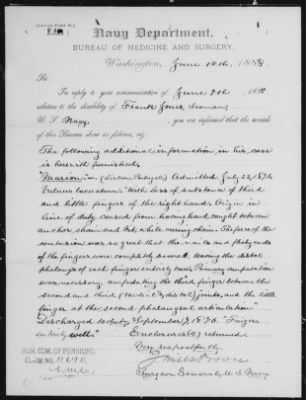 Navy Department,
BUREAU OF MEDICINE AND SURGERY,
Washington, June 10th, 1888
To
In reply to your communication of June 9th, 188
relative to the disability of Frank Jones, seaman,
U. S. Navy, you are informed that the records
of this Bureau show as follows, viz:
The following additional information in his case
is herewith furnished,
"Marion":- Admitted July 22, 187
Vulnus Laceratum. With loss of substance of third
and little fingers of the right hand. Origin in
line of duty, caused from having hand caught between
anchor chain and while chain. The force of the
contusion was so great that the and fleshy ends
of the fingers were completely severed, leaving the distal
phalanges of each finger entirely bare. Primary amputation
was necessary, amputating the third finger between the
second and third joints, and the little
finger at the second phalangeal articulation"
Discharged to duty September 7, 187 "Fingers
entirely well" Enclosures returned
Very respectfully,
Surgeon General, U. S. Navy
COM. OF PENSIONS,